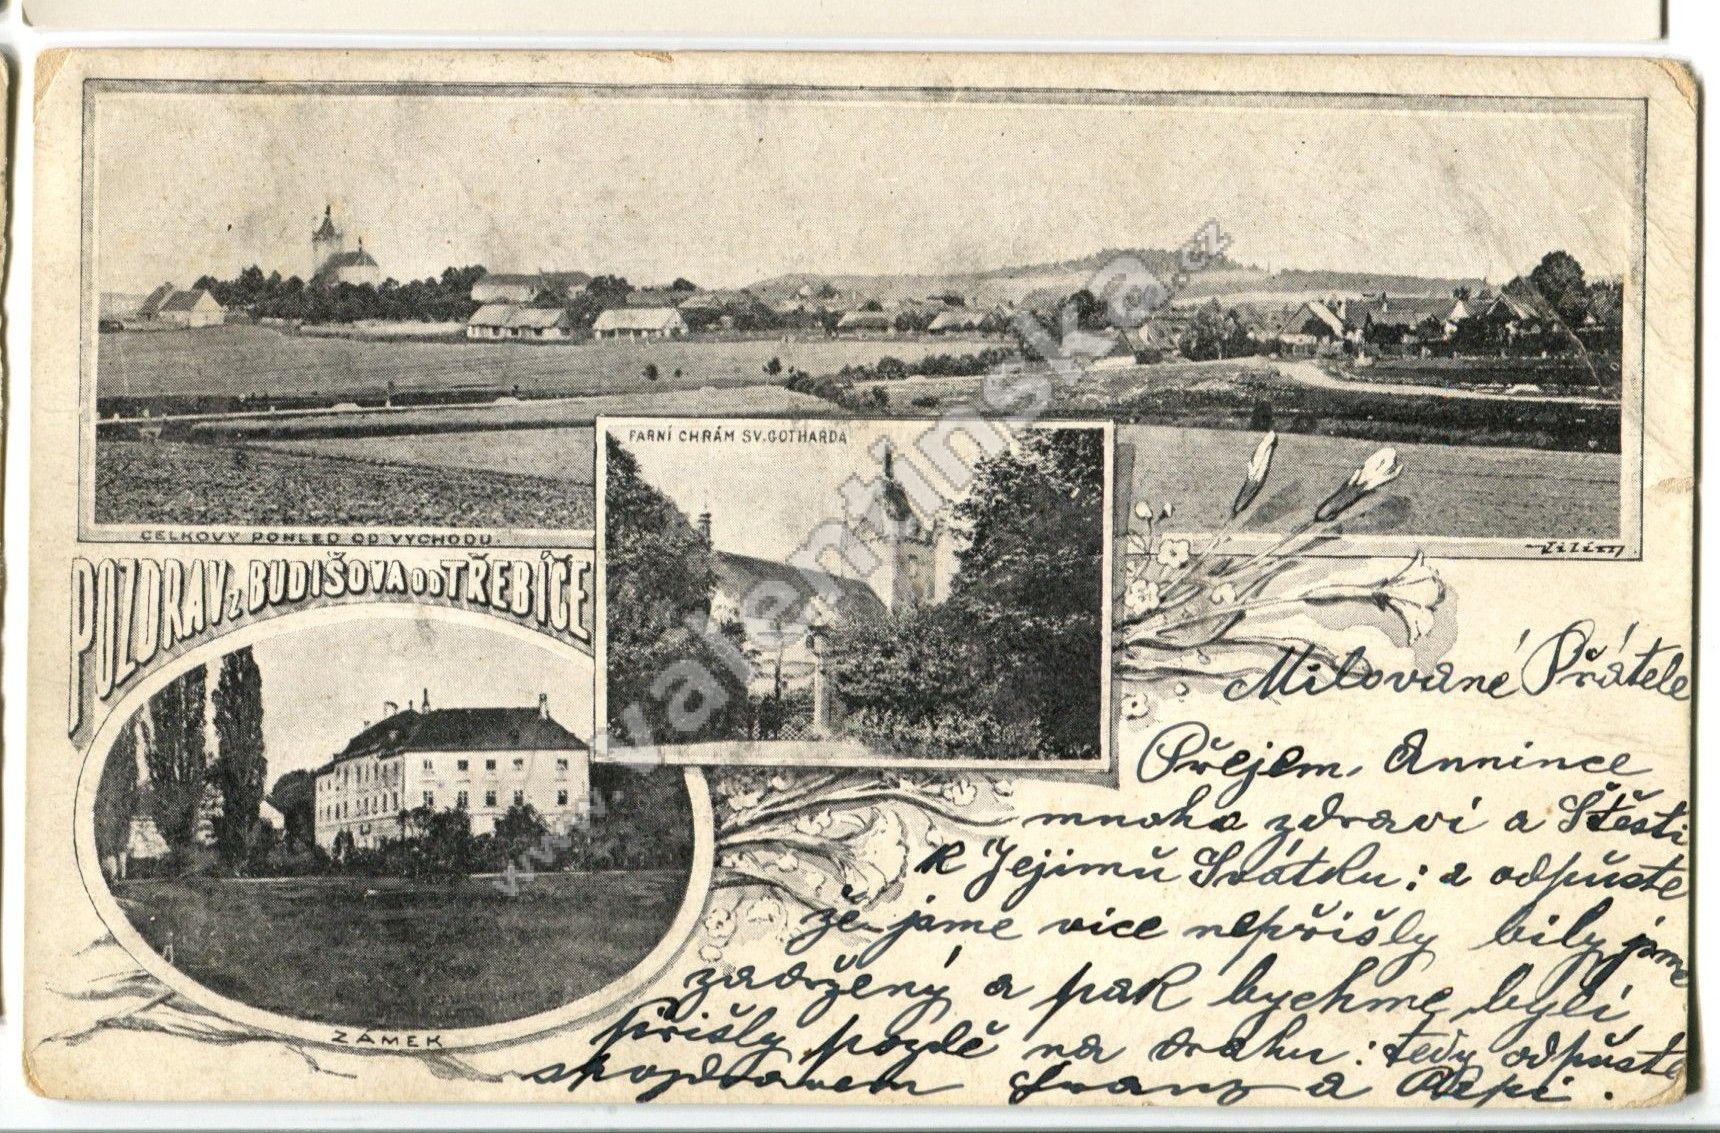 CELKOVÝ POHLED OD VÝCHODU.
FARNÍ CHRÁM SV. GOTHARDA
POZDRAV z BUDIŠOVA OD TŘEBÍČE
ZÁMEK
Milované Přátele
Přejem, Annince
mnoho zdraví a Štěsti
k Jejimů Svátku: a odpůste
že jsme více nepřišly bily jsme
zadržený a pak bychme byli
přišly pozdě na drahu: tedy odpůste
spozdravem Franz a Pepi.
www.valentinska.cz